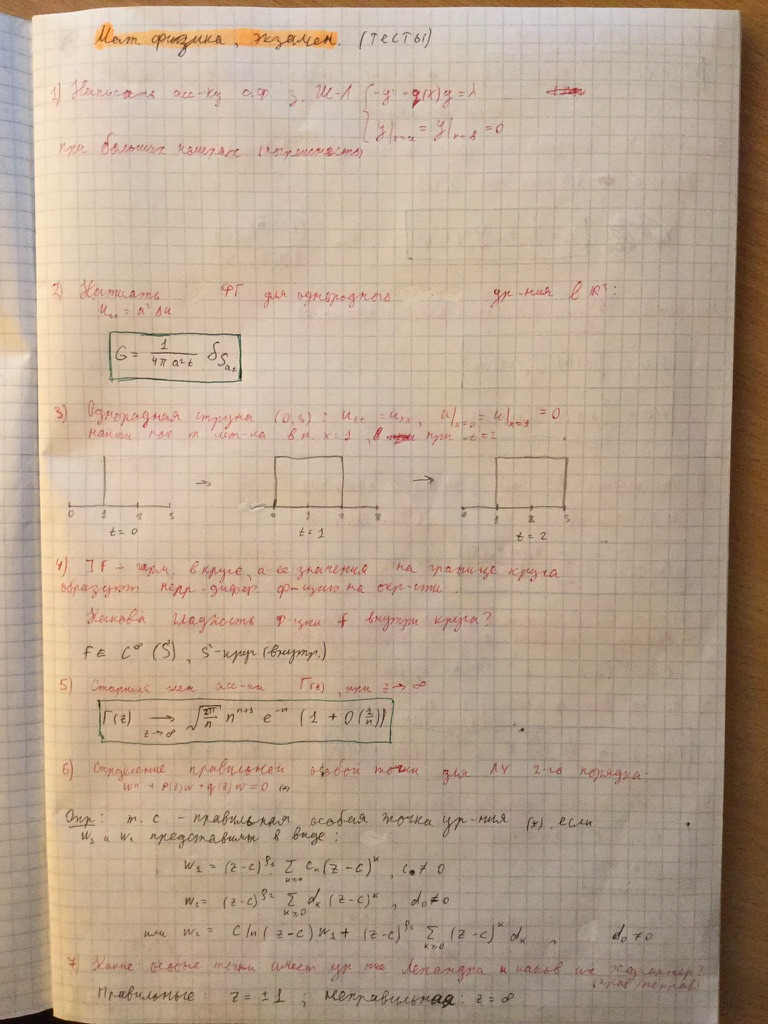 Мат физика, экзамен. (тесты)
1) Написать ас-ку с.ф. з. Ш-Л { -y'' + q(x)y = λ
y|ₓ₌ₐ = y|ₓ₌ = 0
при больших номерах
2) Написать ФГ для однородного ур-ния в ℝ³:
uₜₜ = a² Δu
G = 1/(4πa²t) δ_{S_{at}}
3) Однородная струна (0,3): uₜₜ = uₓₓ, u|ₓ₌₀ = u|ₓ₌₃ = 0
найти в т. x = 1, при t = 2
0 1 2 3 → 0 1 2 3 → 0 1 2 3
t = 0 t = 1 t = 2
4) ]f – гарм. в круге, а ее значения на границе круга
образуют непр. дифер. ф-цию на окр-сти.
Какова гладкость ф-ции f внутри круга?
f ∈ C^∞ (S), S – круг (внутр.)
5) Старший член ас-ки Γ(z), при z → ∞
Γ(z) → z→∞ √(2π/n) n^{n+1} e^{-n} (1 + O(1/n))
6) Определение правильной особой точки для ЛУ 2-го порядка:
w'' + p(z)w + q(z)w = 0 (*)
Опр: т. c – правильная особая точка ур-ния (*), если
w₁ и w₂ представимы в виде:
w₁ = (z-c)^{ρ₁} Σ_{k≥0} cₖ (z-c)^k, c₀ ≠ 0
w₂ = (z-c)^{ρ₂} Σ_{k≥0} dₖ (z-c)^k, d₀ ≠ 0
или w₂ = C ln(z-c) w₁ + (z-c)^{ρ₂} Σ_{k≥0} (z-c)^k dₖ, d₀ ≠ 0
7) Какие особые точки имеет ур-ние Лежандра и каков их характер?
(прав/неправ)
Правильные: z = ±1 ; неправильная: z = ∞